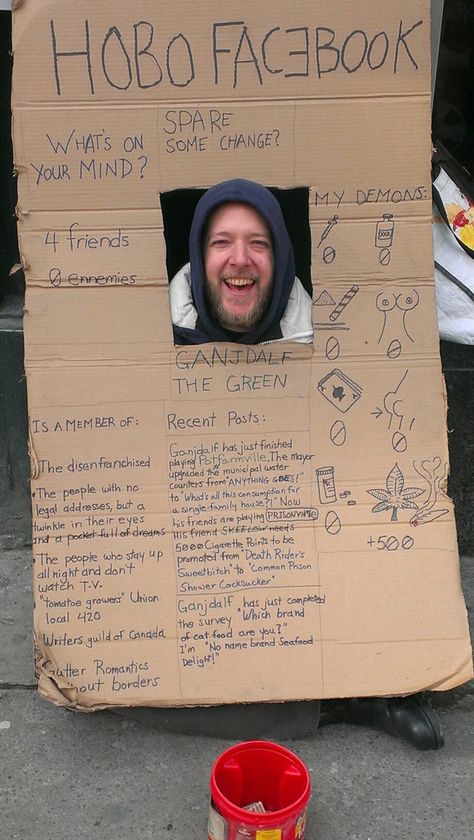 HOBO FACEBOOK
WHAT'S ON
YOUR MIND?
SPARE
SOME CHANGE?
4 friends
0 ennemies
MY DEMONS:
0 0
0 0
0 0
0 +500
GANJDALF
THE GREEN
IS A MEMBER OF:
The disenfranchised
The people with no
legal addresses, but a
twinkle in their eyes
and a pocket full of dreams
The people who stay up
all night and don't
watch T.V.
"Tomatoe growers" Union
local 420
Writers guild of Canada
Gutter Romantics
out borders
Recent Posts:
Ganjdalf has just finished
playing Potfarmville. The mayor
upgraded the municipal water
counters from "ANYTHING GOES!"
to "What's all this consumption for
a single family house?!" Now
his friends are playing PRISONVILLE
His friend needs
5000 Cigarette Points to be
promoted from "Death Rider's
Sweetbitch" to "Common Prison
Shower Cocksucker"
Ganjdalf has just completed
the survey "Which brand
of cat food are you?"
I'm "No name brand Seafood
Delight!"